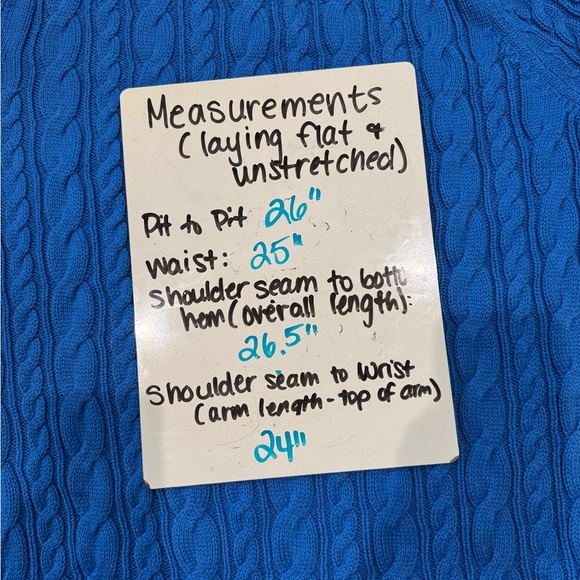 Measurements
(laying flat &
unstretched)
Pit to Pit 26"
waist: 25"
Shoulder seam to botto
hem (overall length):
26.5"
Shoulder seam to wrist
(arm length - top of arm)
24"